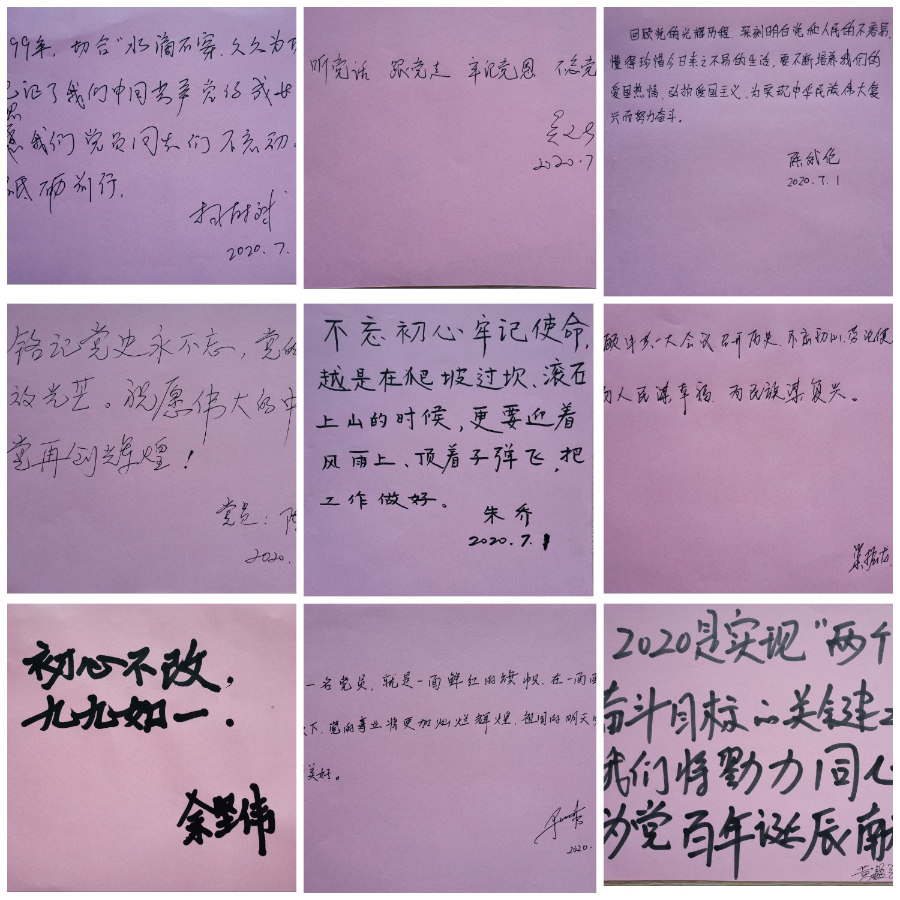 99年，切合“水滴石穿，久久为功
已证了我们中国共产党的成长
愿我们党员同志们不忘初心
砥砺前行。
2020.7.
听党话 跟党走 牢记党恩 不忘党
2020.7
回顾党的光辉历程，深刻明白党和人民的不易，
懂得珍惜今日来之不易的生活，要不断培养我们的
爱国热情，弘扬爱国主义，为实现中华民族伟大复
兴而努力奋斗。
2020.7.1
铭记党史永不忘，党的
放光芒。祝愿伟大的中
党再创辉煌！
党员：陈
2020.
不忘初心牢记使命，
越是在爬坡过坎、滚石
上山的时候，更要迎着
风雨上、顶着子弹飞，把
工作做好。
朱乔
2020.7.1
顾中共一大会议召开历史，不忘初心，牢记使
为人民谋幸福，为民族谋复兴。
初心不改，
九九如一．
余坚伟
一名党员，就是一面鲜红的旗帜，在一面面
下，党的事业将更加灿烂辉煌，祖国的明天
美好。
2020.
2020是实现“两个
奋斗目标的关键
我们将勠力同心
为党百年诞辰献